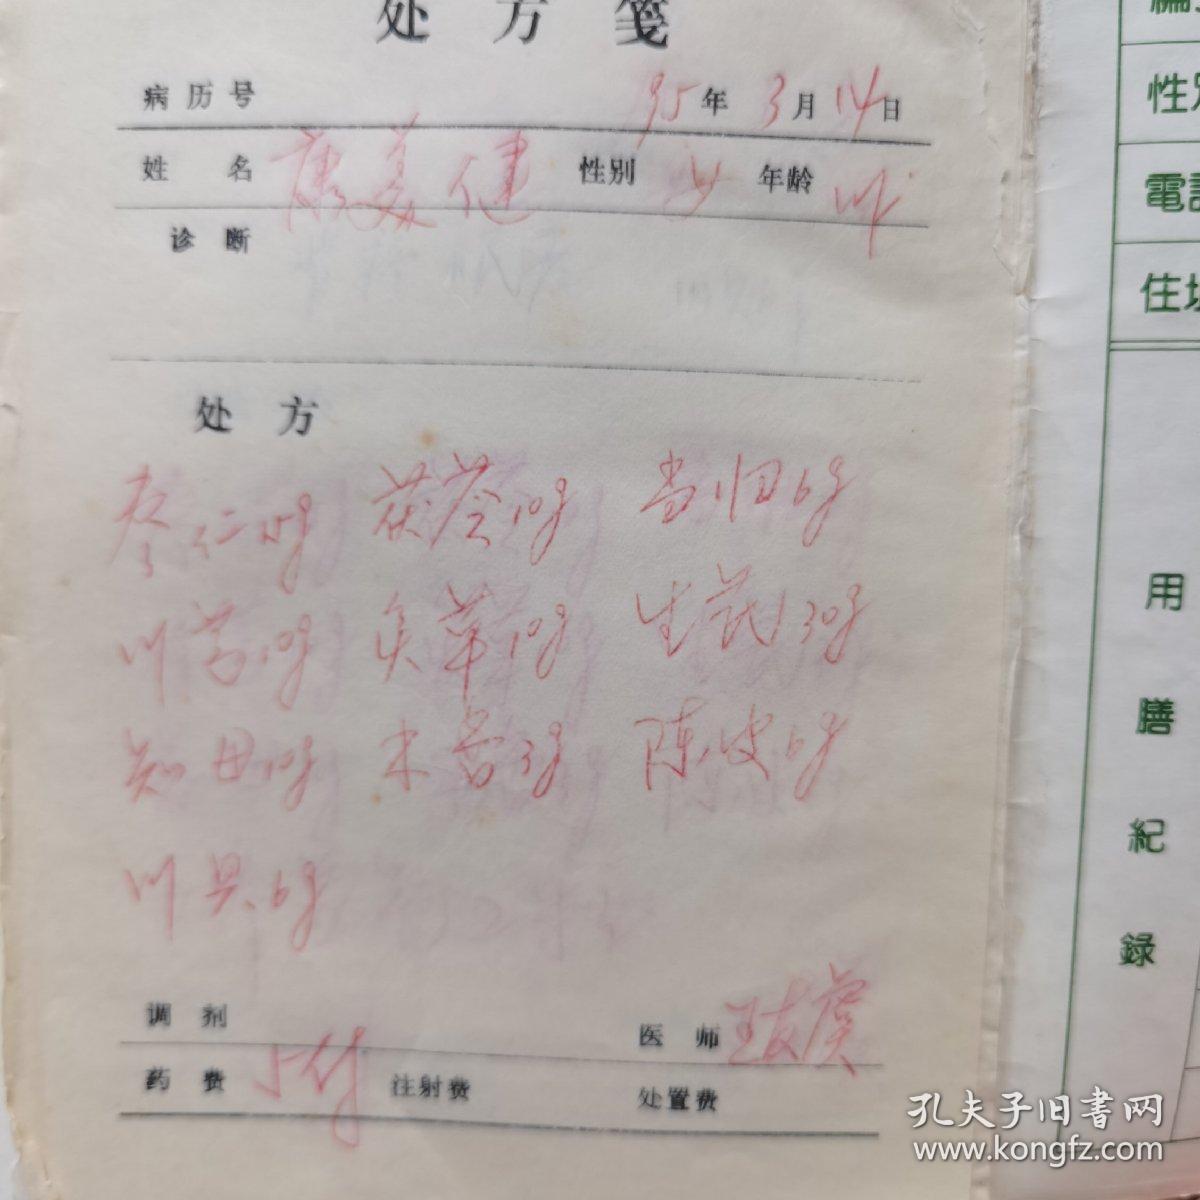 处方笺
病历号 95年3月14日
姓名 康美健 性别 女 年龄
诊断
处方
枣仁15g 茯苓10g 当归6g
川芎10g 炙草10g 生芪30g
知母10g 木香3g 陈皮6g
川贝6g
调剂 医师 王友虞
药费 5付 注射费 处置费
性别
電話
住址
用膳紀錄
孔夫子旧书网
www.kongfz.com